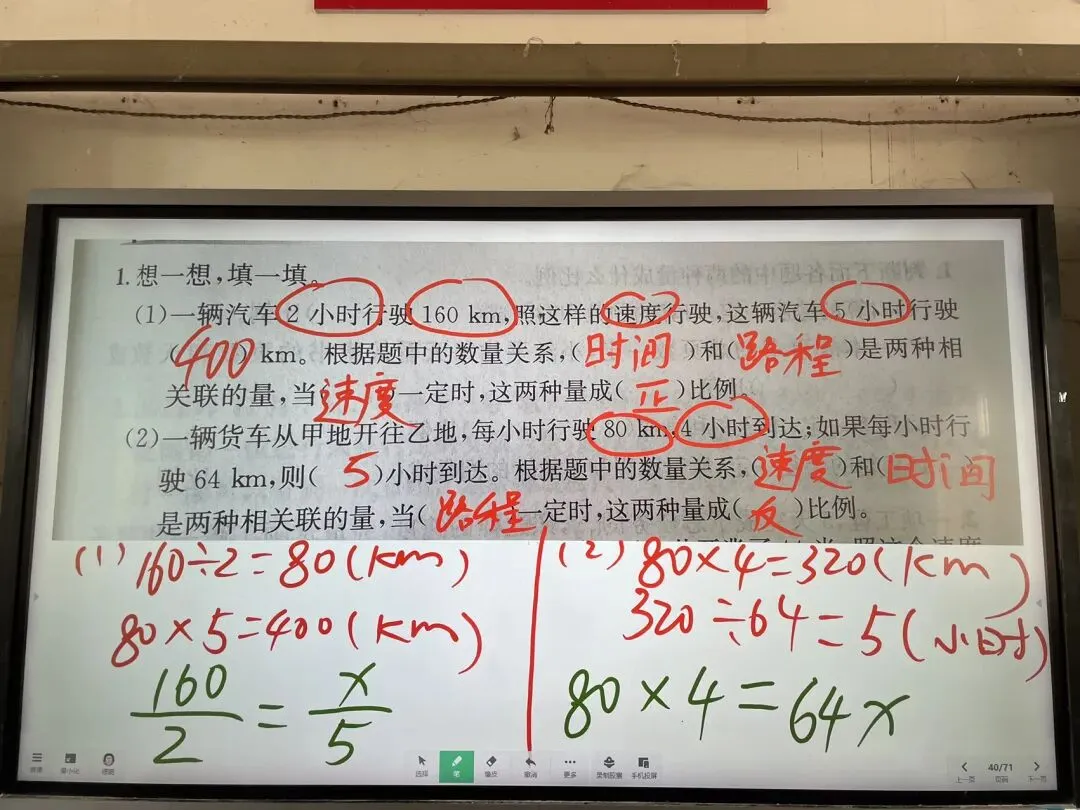 1.想一想,填一填。
(1)一辆汽车2小时行驶160 km,照这样的速度行驶,这辆汽车5小时行驶
(400) km。根据题中的数量关系,(时间)和(路程)是两种相
关联的量,当速度一定时,这两种量成(正)比例。
(2)一辆货车从甲地开往乙地,每小时行驶80 km,4小时到达;如果每小时行
驶64 km,则(5)小时到达。根据题中的数量关系,(速度)和(时间)
是两种相关联的量,当(路程一定时,这两种量成(反)比例。
(1) 160÷2=80(km)
80×5=400(km)
160/2=x/5
(2) 80×4=320(km)
320÷64=5(小时)
80×4=64x
选择 笔 橡皮 撤消 更多 录制胶囊 手机投屏
上一页 40/71 页码 下一页